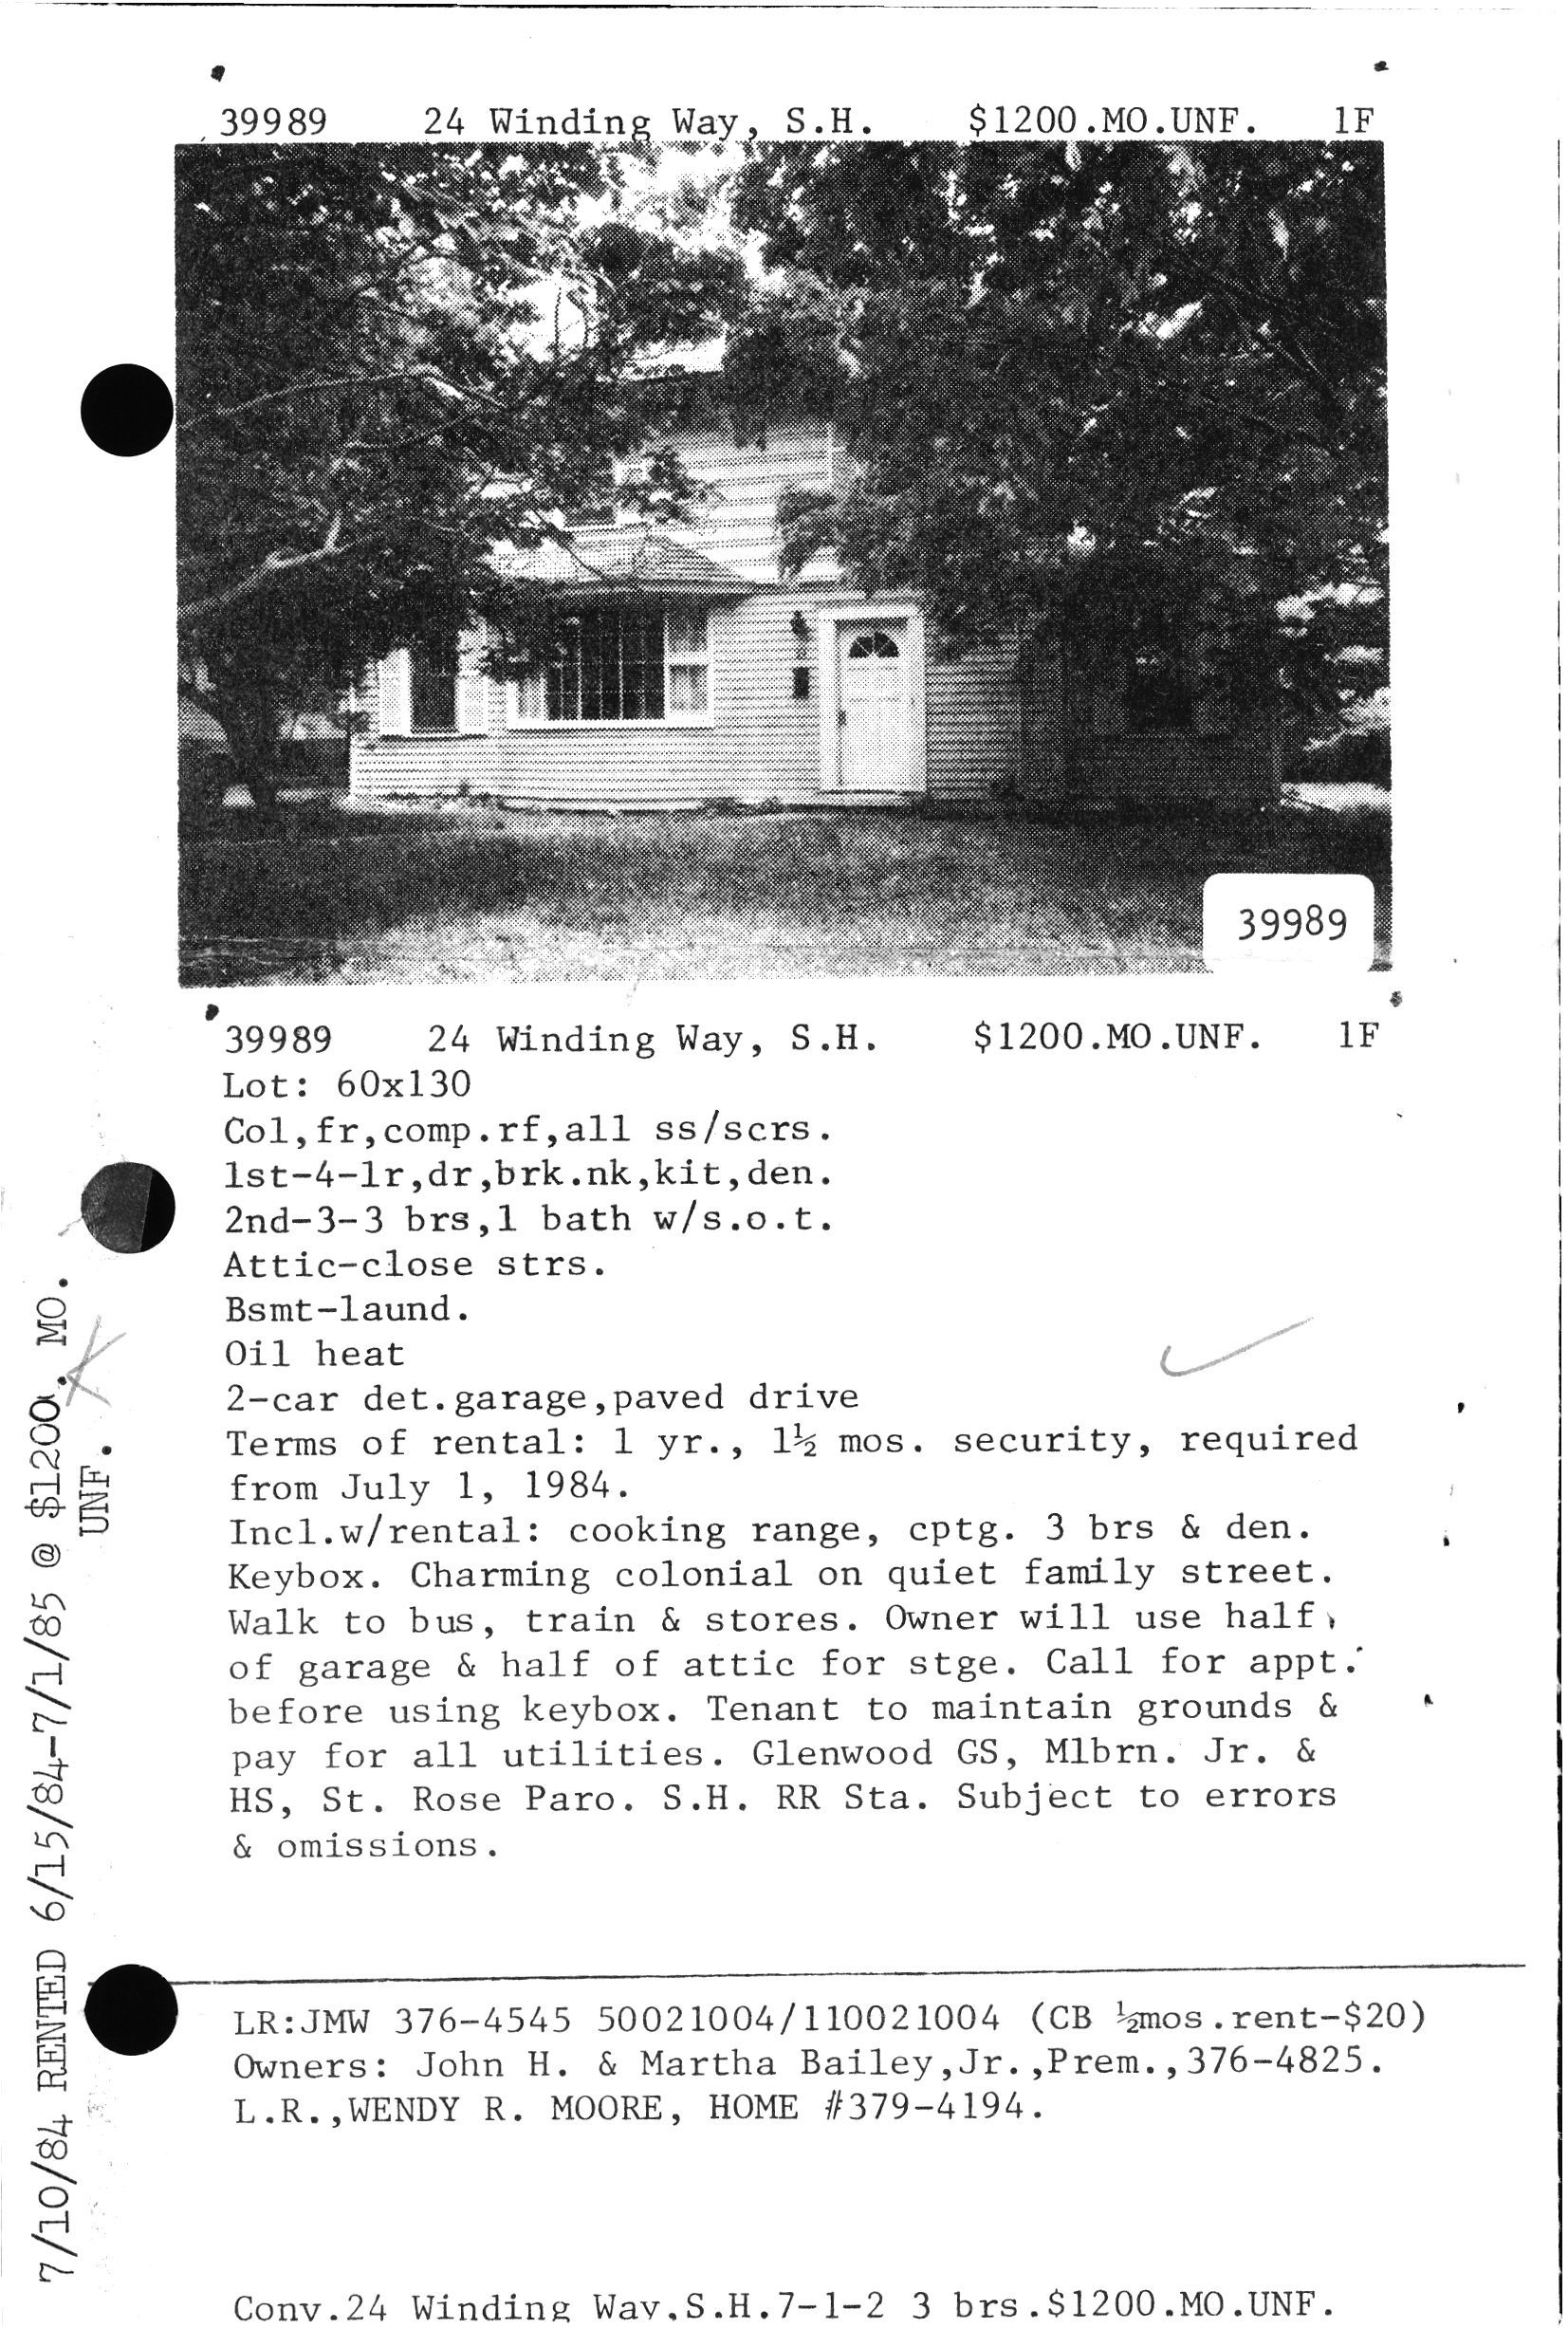 39989 24 Winding Way, S.H. $1200.MO.UNF. 1F
39989
39989 24 Winding Way, S.H. $1200.MO.UNF. 1F
Lot: 60x130
Col,fr,comp.rf,all ss/scrs.
1st-4-lr,dr,brk.nk,kit,den.
2nd-3-3 brs,1 bath w/s.o.t.
Attic-close strs.
Bsmt-laund.
Oil heat
2-car det.garage,paved drive
Terms of rental: 1 yr., 1½ mos. security, required
from July 1, 1984.
Incl.w/rental: cooking range, cptg. 3 brs & den.
Keybox. Charming colonial on quiet family street.
Walk to bus, train & stores. Owner will use half
of garage & half of attic for stge. Call for appt.
before using keybox. Tenant to maintain grounds &
pay for all utilities. Glenwood GS, Mlbrn. Jr. &
HS, St. Rose Paro. S.H. RR Sta. Subject to errors
& omissions.
LR:JMW 376-4545 50021004/110021004 (CB ½mos.rent-$20)
Owners: John H. & Martha Bailey,Jr.,Prem.,376-4825.
L.R.,WENDY R. MOORE, HOME #379-4194.
Conv.24 Winding Way,S.H.7-1-2 3 brs.$1200.MO.UNF.
7/10/84 RENTED 6/15/84-7/1/85 @ $1200. MO.
UNF.